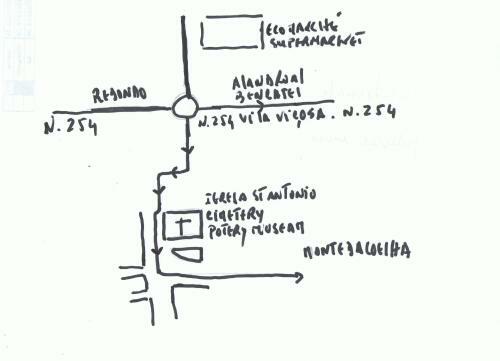 ECOMARCHÉ
SUPERMARKET
REDONDO
ALANDROAL
BENCATEL
N. 254
N. 254 VILA VIÇOSA. N. 254
IGREJA ST ANTONIO
CEMETERY
POTERY MUSEUM
MONTE DA COELHA